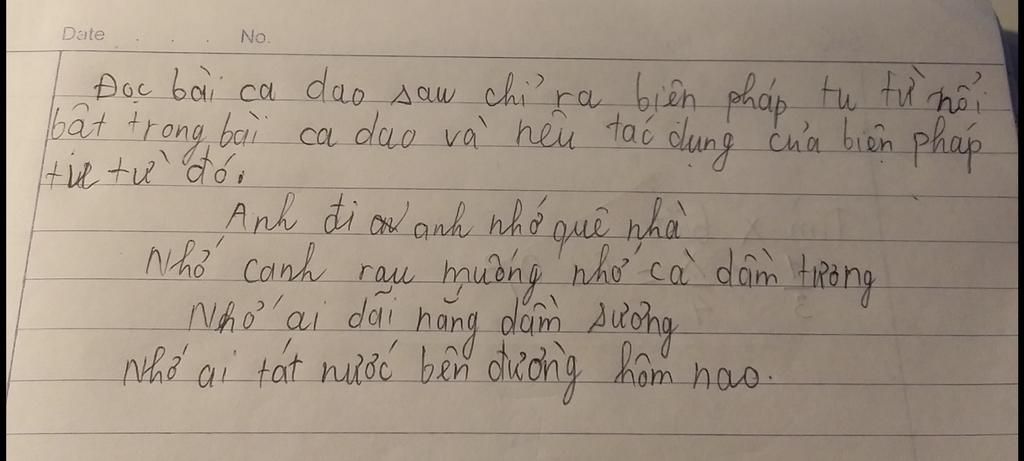 Date . . . . No.
Đọc bài ca dao sau chỉ ra biện pháp tu từ nổi
bật trong bài ca dao và nêu tác dụng của biện pháp
tu từ đó.
Anh đi anh nhớ quê nhà
Nhớ canh rau muống nhớ cà dầm tương
Nhớ ai dãi nắng dầm sương
Nhớ ai tát nước bên đường hôm nao.